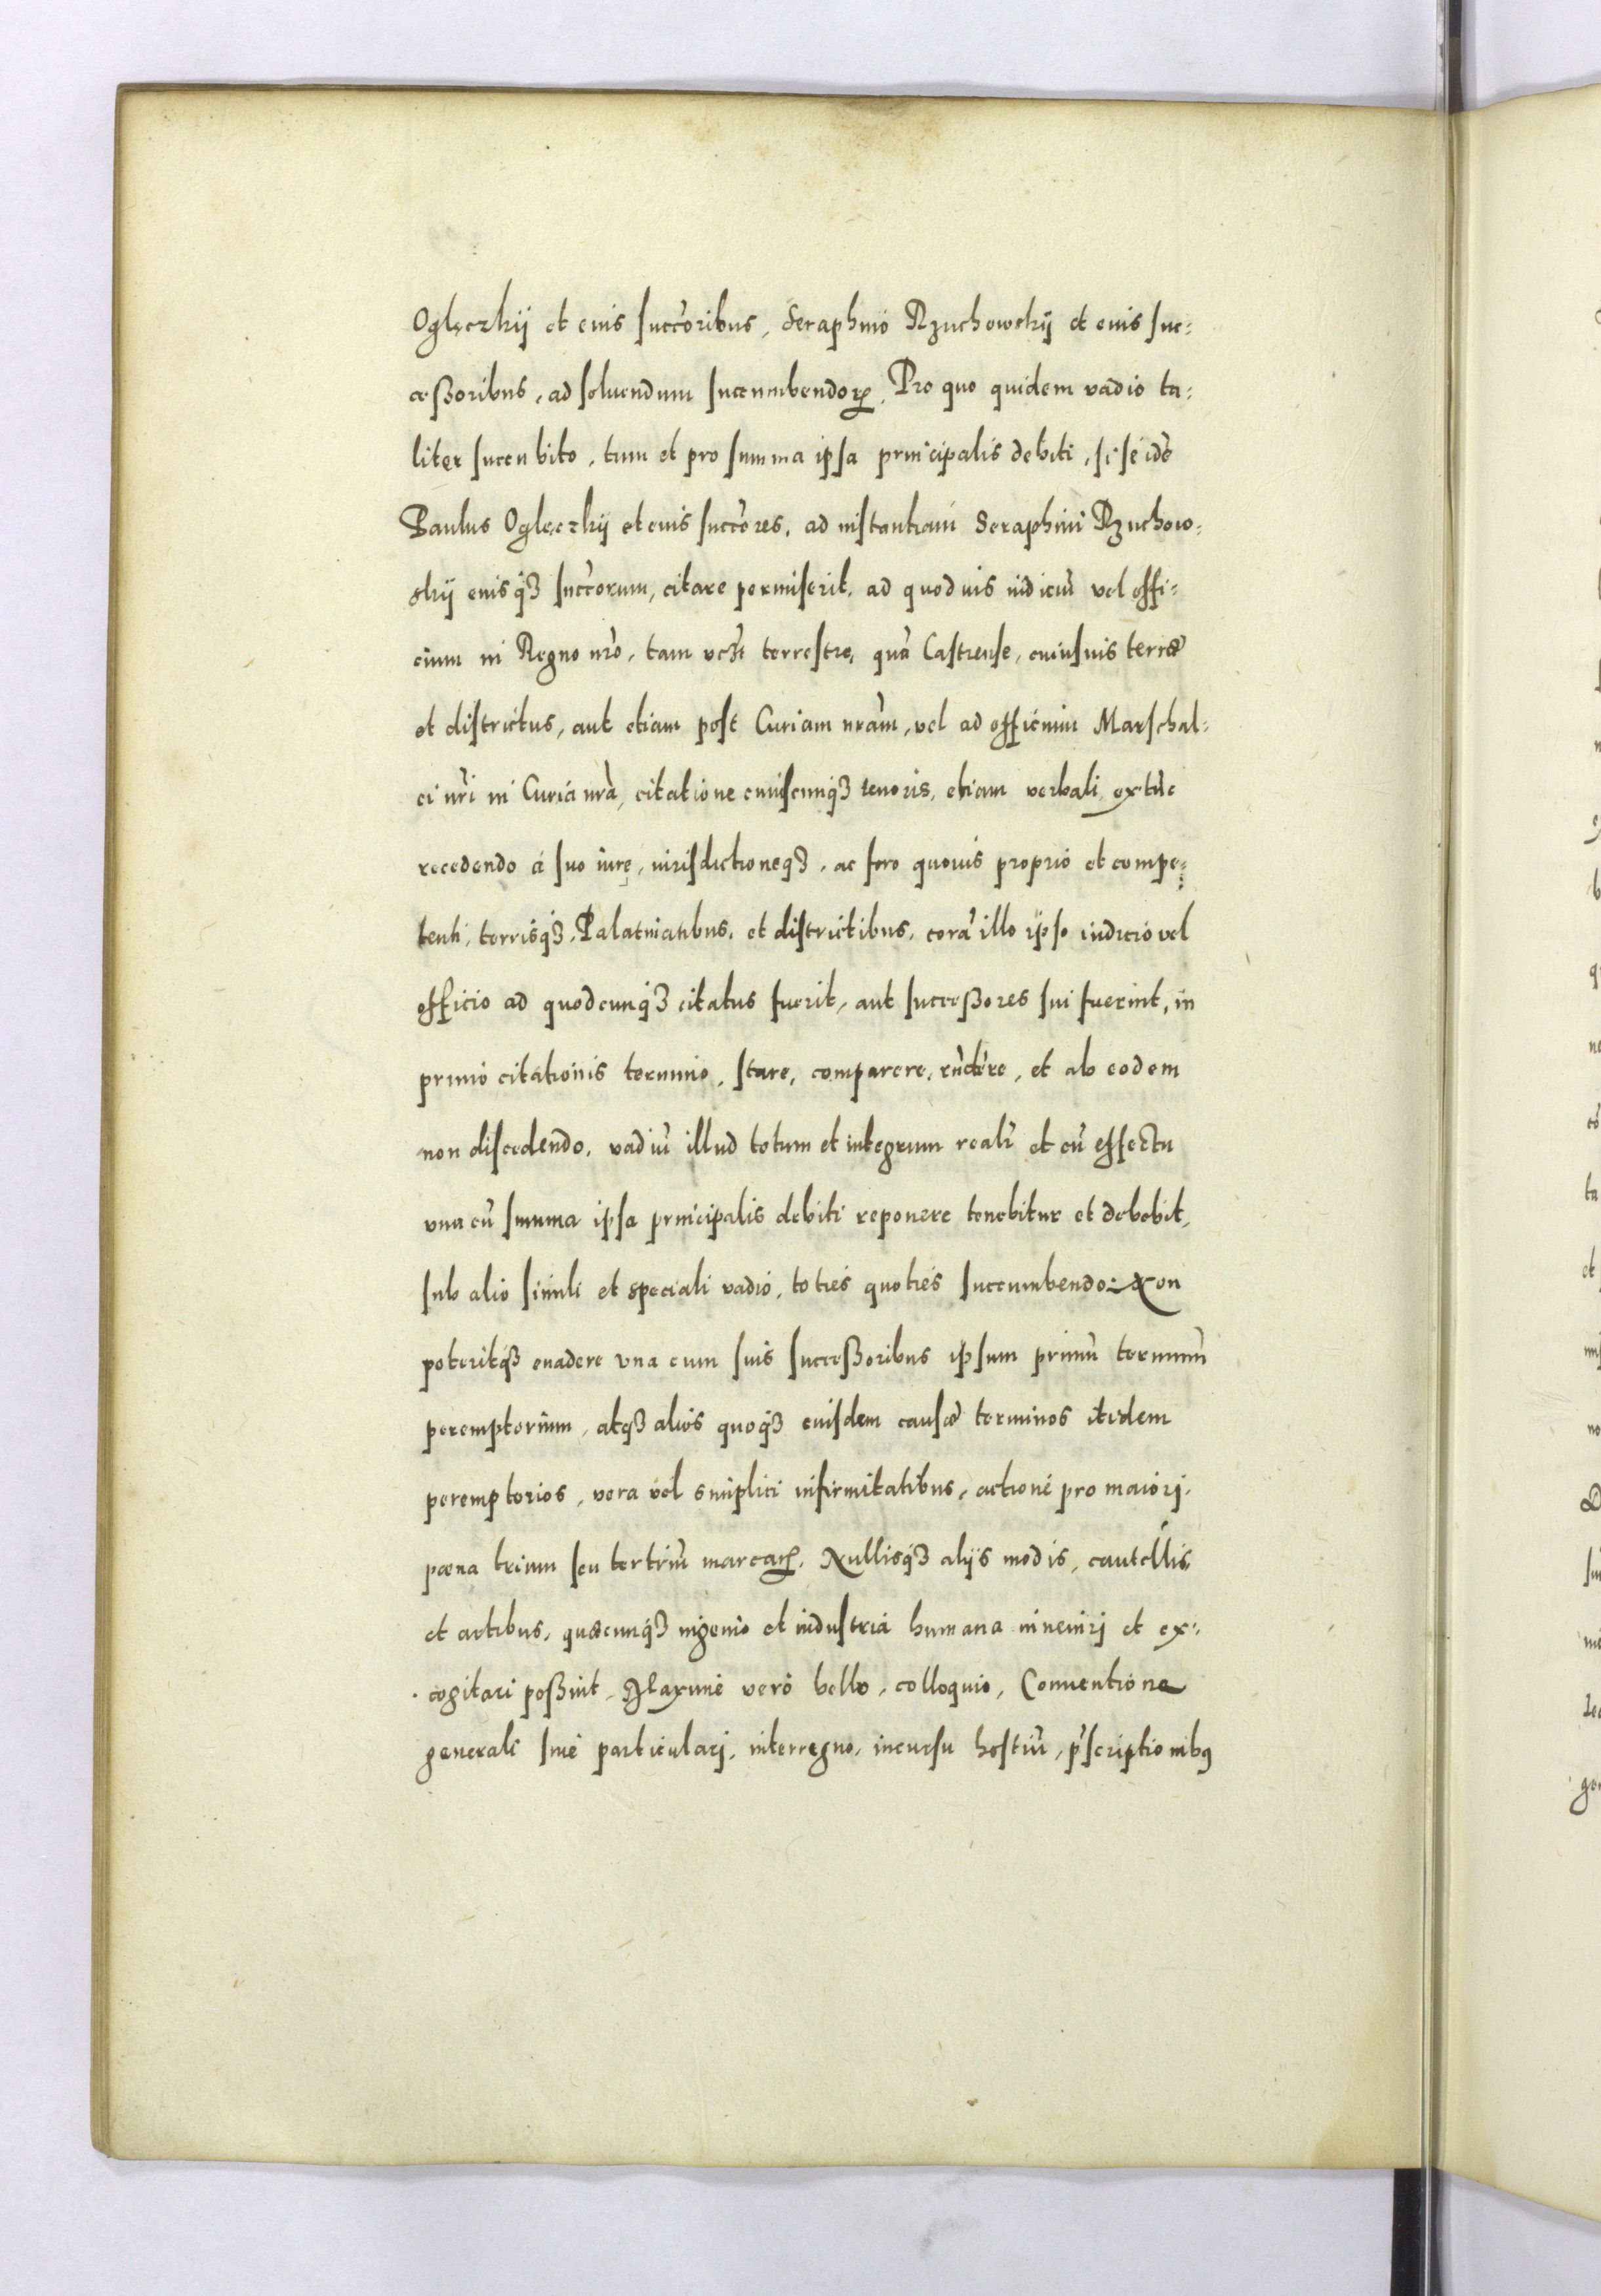 Oglęczkij et euis succ̃oribus, Seraphino Rzuchowskij et euis suc:
ceßoribus, ad soluendum succumbendoꝝ. Pro quo quidem vadio ta:
liter succubito, tum et pro summa ipsa principalis debiti, si se idẽ
Paulus Oglęczkij et euis succ̃ores, ad instantiam Seraphini Rzuchow:
skij euisqꝫ succ̃orum, citare permiserit, ad quoduis iudiciũ vel offi:
cium in Regno nr̃o, tam vcꝫt terrestre, quã Castrense, cuiusuis terræ
et districtus, aut etiam post Curiam nram̃, vel ad officium Marschal:
ci nr̃i in Curia nr̃a, citatione cuiuscunqꝫ tenoris, etiam verbali extũc
recedendo à suo iure, iurisdictioneqꝫ, ac foro quouis proprio et compe:
tenti, terrisqꝫ, Palatinatibus, et districtibus, corã illo ipso iudicio vel
officio ad quodcunqꝫ citatus fuerit, aut succeßores sui fuerint, in
primo citationis termino, stare, comparere, rñdere, et ab eodem
non discedendo, vadiũ illud totum et integrum realr̃ et cũ effectu
vna cũ summa ipsa principalis debiti reponere tenebitur et debebit,
sub alio simili et speciali vadio, toties quoties succumbendo: Non
poteritqꝫ euadere vna cum suis succeßoribus ipsum primũ terminũ
peremptorium, atqꝫ alios quoqꝫ euisdem causæ terminos itidem
peremptorios, vera vel simplici infirmitatibus, actione pro maiori,
pœna trium seu tertriũ marcaꝝ, Nullisqꝫ alijs modis, cautellis,
et artibus, quæcunqꝫ ingenio et industria humana inueniri et ex:
cogitari poßint, Maxime vero bello, colloquio, Conuentione
generali siue particulari, interregno, incursu hostiũ, p̃scriptionibꝰ